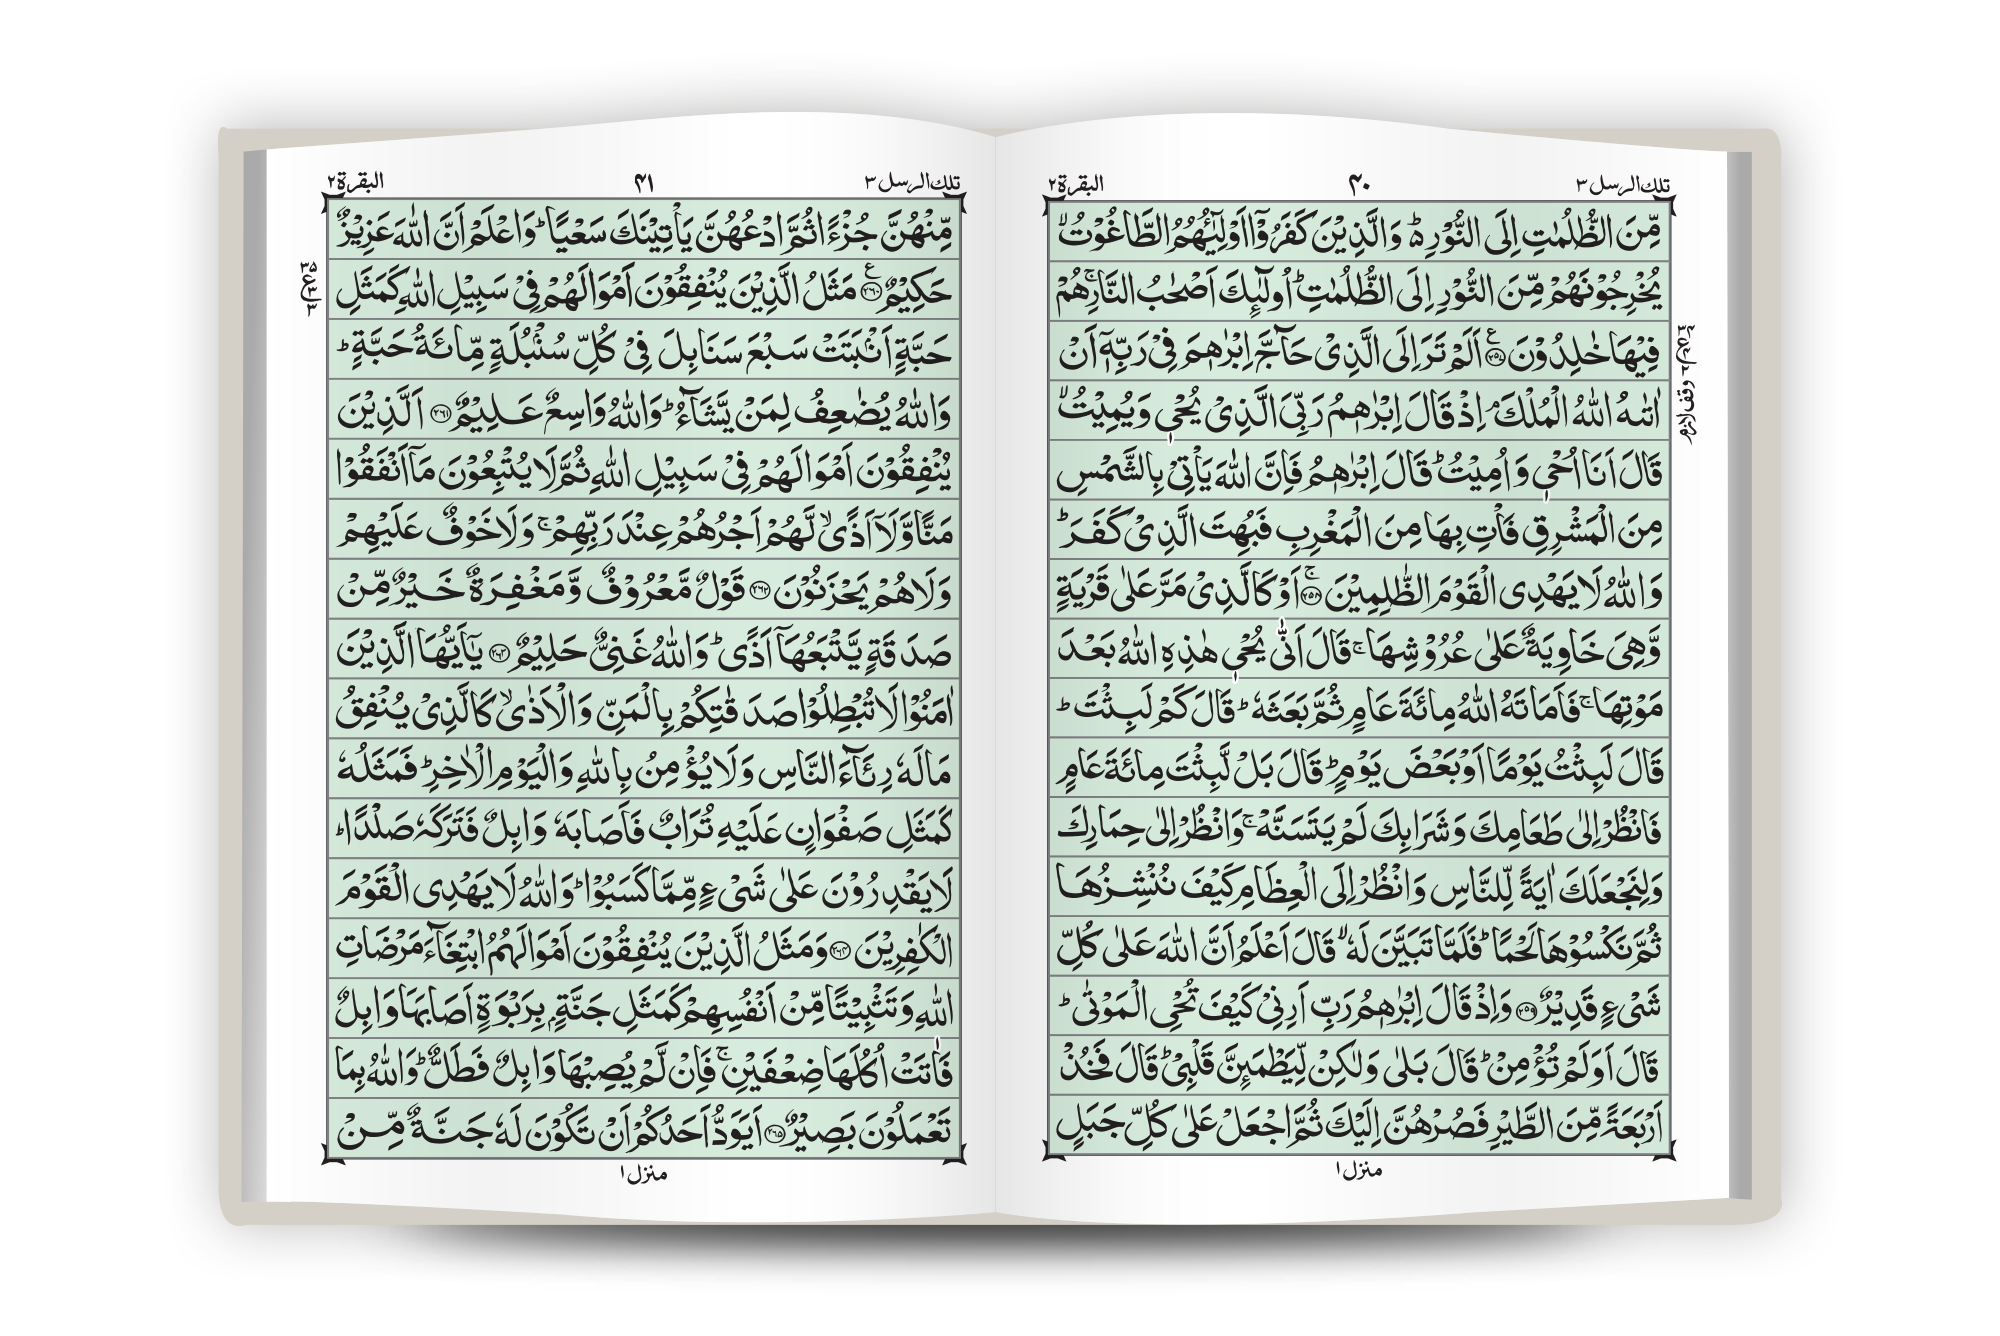 تلك الرسل ۳
۴۰
البقرة ۲
مِّنَ الظُّلُمٰتِ اِلَى النُّوْرِ۬ؕ وَالَّذِيْنَ كَفَرُوْۤا اَوْلِيٰٓئُهُمُ الطَّاغُوْتُۙ
يُخْرِجُوْنَهُمْ مِّنَ النُّوْرِ اِلَى الظُّلُمٰتِؕ اُولٰٓئِكَ اَصْحٰبُ النَّارِۚ هُمْ
فِيْهَا خٰلِدُوْنَ ۝۲۵۷ اَلَمْ تَرَ اِلَى الَّذِيْ حَآجَّ اِبْرٰهٖمَ فِيْ رَبِّهٖۤ اَنْ
اٰتٰىهُ اللّٰهُ الْمُلْكَۘ اِذْ قَالَ اِبْرٰهٖمُ رَبِّيَ الَّذِيْ يُحْيٖ وَيُمِيْتُۙ
قَالَ اَنَا اُحْيٖ وَاُمِيْتُؕ قَالَ اِبْرٰهٖمُ فَاِنَّ اللّٰهَ يَاْتِيْ بِالشَّمْسِ
مِنَ الْمَشْرِقِ فَاْتِ بِهَا مِنَ الْمَغْرِبِ فَبُهِتَ الَّذِيْ كَفَرَؕ
وَاللّٰهُ لَا يَهْدِى الْقَوْمَ الظّٰلِمِيْنَ ۝۲۵۸ۚ اَوْ كَالَّذِيْ مَرَّ عَلٰى قَرْيَةٍ
وَّهِيَ خَاوِيَةٌ عَلٰى عُرُوْشِهَاۚ قَالَ اَنّٰى يُحْيٖ هٰذِهِ اللّٰهُ بَعْدَ
مَوْتِهَاۚ فَاَمَاتَهُ اللّٰهُ مِائَةَ عَامٍ ثُمَّ بَعَثَهٗؕ قَالَ كَمْ لَبِثْتَؕ
قَالَ لَبِثْتُ يَوْمًا اَوْ بَعْضَ يَوْمٍؕ قَالَ بَلْ لَّبِثْتَ مِائَةَ عَامٍ
فَانْظُرْ اِلٰى طَعَامِكَ وَشَرَابِكَ لَمْ يَتَسَنَّهْۚ وَانْظُرْ اِلٰى حِمَارِكَ
وَلِنَجْعَلَكَ اٰيَةً لِّلنَّاسِ وَانْظُرْ اِلَى الْعِظَامِ كَيْفَ نُنْشِزُهَا
ثُمَّ نَكْسُوْهَا لَحْمًاؕ فَلَمَّا تَبَيَّنَ لَهٗۙ قَالَ اَعْلَمُ اَنَّ اللّٰهَ عَلٰى كُلِّ
شَيْءٍ قَدِيْرٌ ۝۲۵۹ وَاِذْ قَالَ اِبْرٰهٖمُ رَبِّ اَرِنِيْ كَيْفَ تُحْيِ الْمَوْتٰىؕ
قَالَ اَوَلَمْ تُؤْمِنْؕ قَالَ بَلٰى وَلٰكِنْ لِّيَطْمَئِنَّ قَلْبِيْؕ قَالَ فَخُذْ
اَرْبَعَةً مِّنَ الطَّيْرِ فَصُرْهُنَّ اِلَيْكَ ثُمَّ اجْعَلْ عَلٰى كُلِّ جَبَلٍ
وقف لازم
منزل ۱
تلك الرسل ۳
۴۱
البقرة ۲
مِّنْهُنَّ جُزْءًا ثُمَّ ادْعُهُنَّ يَاْتِيْنَكَ سَعْيًاؕ وَاعْلَمْ اَنَّ اللّٰهَ عَزِيْزٌ
حَكِيْمٌ ۝۲۶۰ مَثَلُ الَّذِيْنَ يُنْفِقُوْنَ اَمْوَالَهُمْ فِيْ سَبِيْلِ اللّٰهِ كَمَثَلِ
حَبَّةٍ اَنْۢبَتَتْ سَبْعَ سَنَابِلَ فِيْ كُلِّ سُنْۢبُلَةٍ مِّائَةُ حَبَّةٍؕ
وَاللّٰهُ يُضٰعِفُ لِمَنْ يَّشَآءُؕ وَاللّٰهُ وَاسِعٌ عَلِيْمٌ ۝۲۶۱ اَلَّذِيْنَ
يُنْفِقُوْنَ اَمْوَالَهُمْ فِيْ سَبِيْلِ اللّٰهِ ثُمَّ لَا يُتْبِعُوْنَ مَاۤ اَنْفَقُوْا
مَنًّا وَّلَاۤ اَذًىۙ لَّهُمْ اَجْرُهُمْ عِنْدَ رَبِّهِمْۚ وَلَا خَوْفٌ عَلَيْهِمْ
وَلَا هُمْ يَحْزَنُوْنَ ۝۲۶۲ قَوْلٌ مَّعْرُوْفٌ وَّمَغْفِرَةٌ خَيْرٌ مِّنْ
صَدَقَةٍ يَّتْبَعُهَاۤ اَذًىؕ وَاللّٰهُ غَنِيٌّ حَلِيْمٌ ۝۲۶۳ يٰۤاَيُّهَا الَّذِيْنَ
اٰمَنُوْا لَا تُبْطِلُوْا صَدَقٰتِكُمْ بِالْمَنِّ وَالْاَذٰىۙ كَالَّذِيْ يُنْفِقُ
مَالَهٗ رِئَآءَ النَّاسِ وَلَا يُؤْمِنُ بِاللّٰهِ وَالْيَوْمِ الْاٰخِرِؕ فَمَثَلُهٗ
كَمَثَلِ صَفْوَانٍ عَلَيْهِ تُرَابٌ فَاَصَابَهٗ وَابِلٌ فَتَرَكَهٗ صَلْدًاؕ
لَا يَقْدِرُوْنَ عَلٰى شَيْءٍ مِّمَّا كَسَبُوْاؕ وَاللّٰهُ لَا يَهْدِى الْقَوْمَ
الْكٰفِرِيْنَ ۝۲۶۴ وَمَثَلُ الَّذِيْنَ يُنْفِقُوْنَ اَمْوَالَهُمُ ابْتِغَآءَ مَرْضَاتِ
اللّٰهِ وَتَثْبِيْتًا مِّنْ اَنْفُسِهِمْ كَمَثَلِ جَنَّةٍۭ بِرَبْوَةٍ اَصَابَهَا وَابِلٌ
فَاٰتَتْ اُكُلَهَا ضِعْفَيْنِۚ فَاِنْ لَّمْ يُصِبْهَا وَابِلٌ فَطَلٌّؕ وَاللّٰهُ بِمَا
تَعْمَلُوْنَ بَصِيْرٌ ۝۲۶۵ اَيَوَدُّ اَحَدُكُمْ اَنْ تَكُوْنَ لَهٗ جَنَّةٌ مِّنْ
منزل ۱